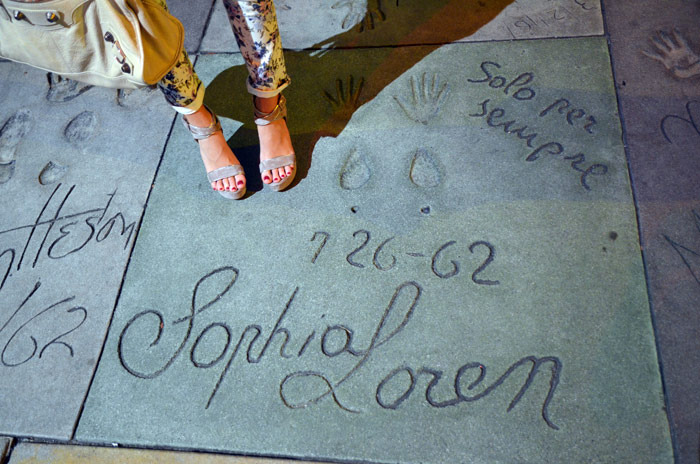 Solo per
sempre
7 26-62
Sophia Loren
Heston
62